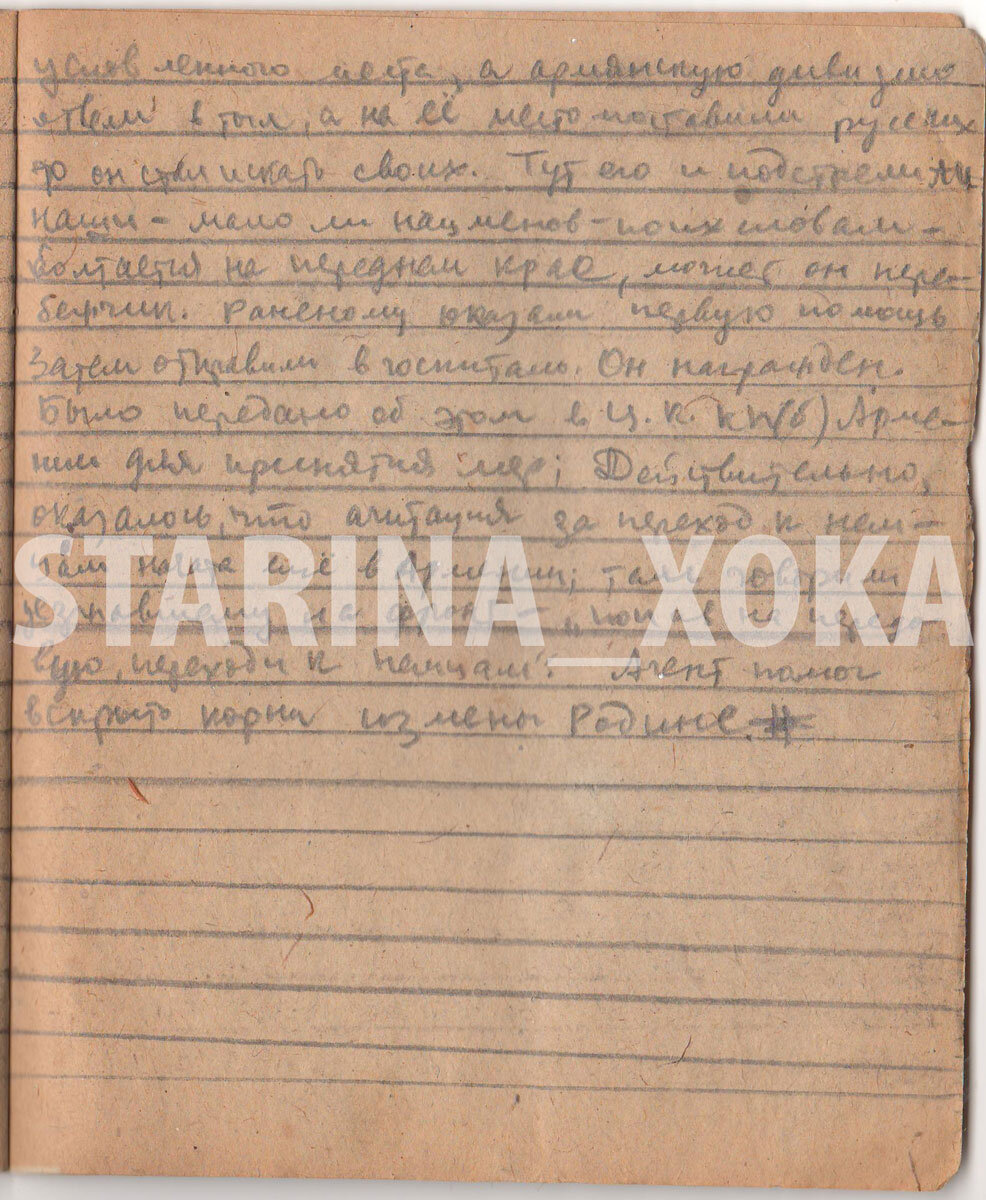 условленного места, а армянскую дивизию
отвели в тыл, а на её место поставили русских
то он стал искать своих. Тут его и подстрелили
наши – мало ли нацменов –
болтается на переднем крае, может он пере-
бежчик. Раненому оказали первую помощь
Затем отправили в госпиталь. Он награжден.
Было передано об этом в Ц.К. КП(б) Арме-
нии для принятия мер; Действительно,
оказалось, что агитация за переход к нем-
цам начата ещё в Армении; там говорили
уезжавшему на фронт – „попав на передо-
вую, переходи к немцам". Агент помог
вскрыть корни измены Родине.
STARINA__XOKA